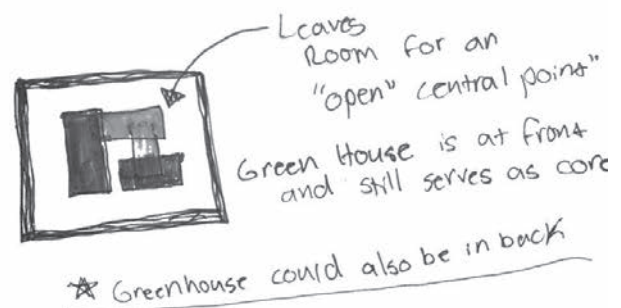 Leaves
Room for an
"open" central point"
Green House is at front
and still serves as core
☆ Greenhouse could also be in back